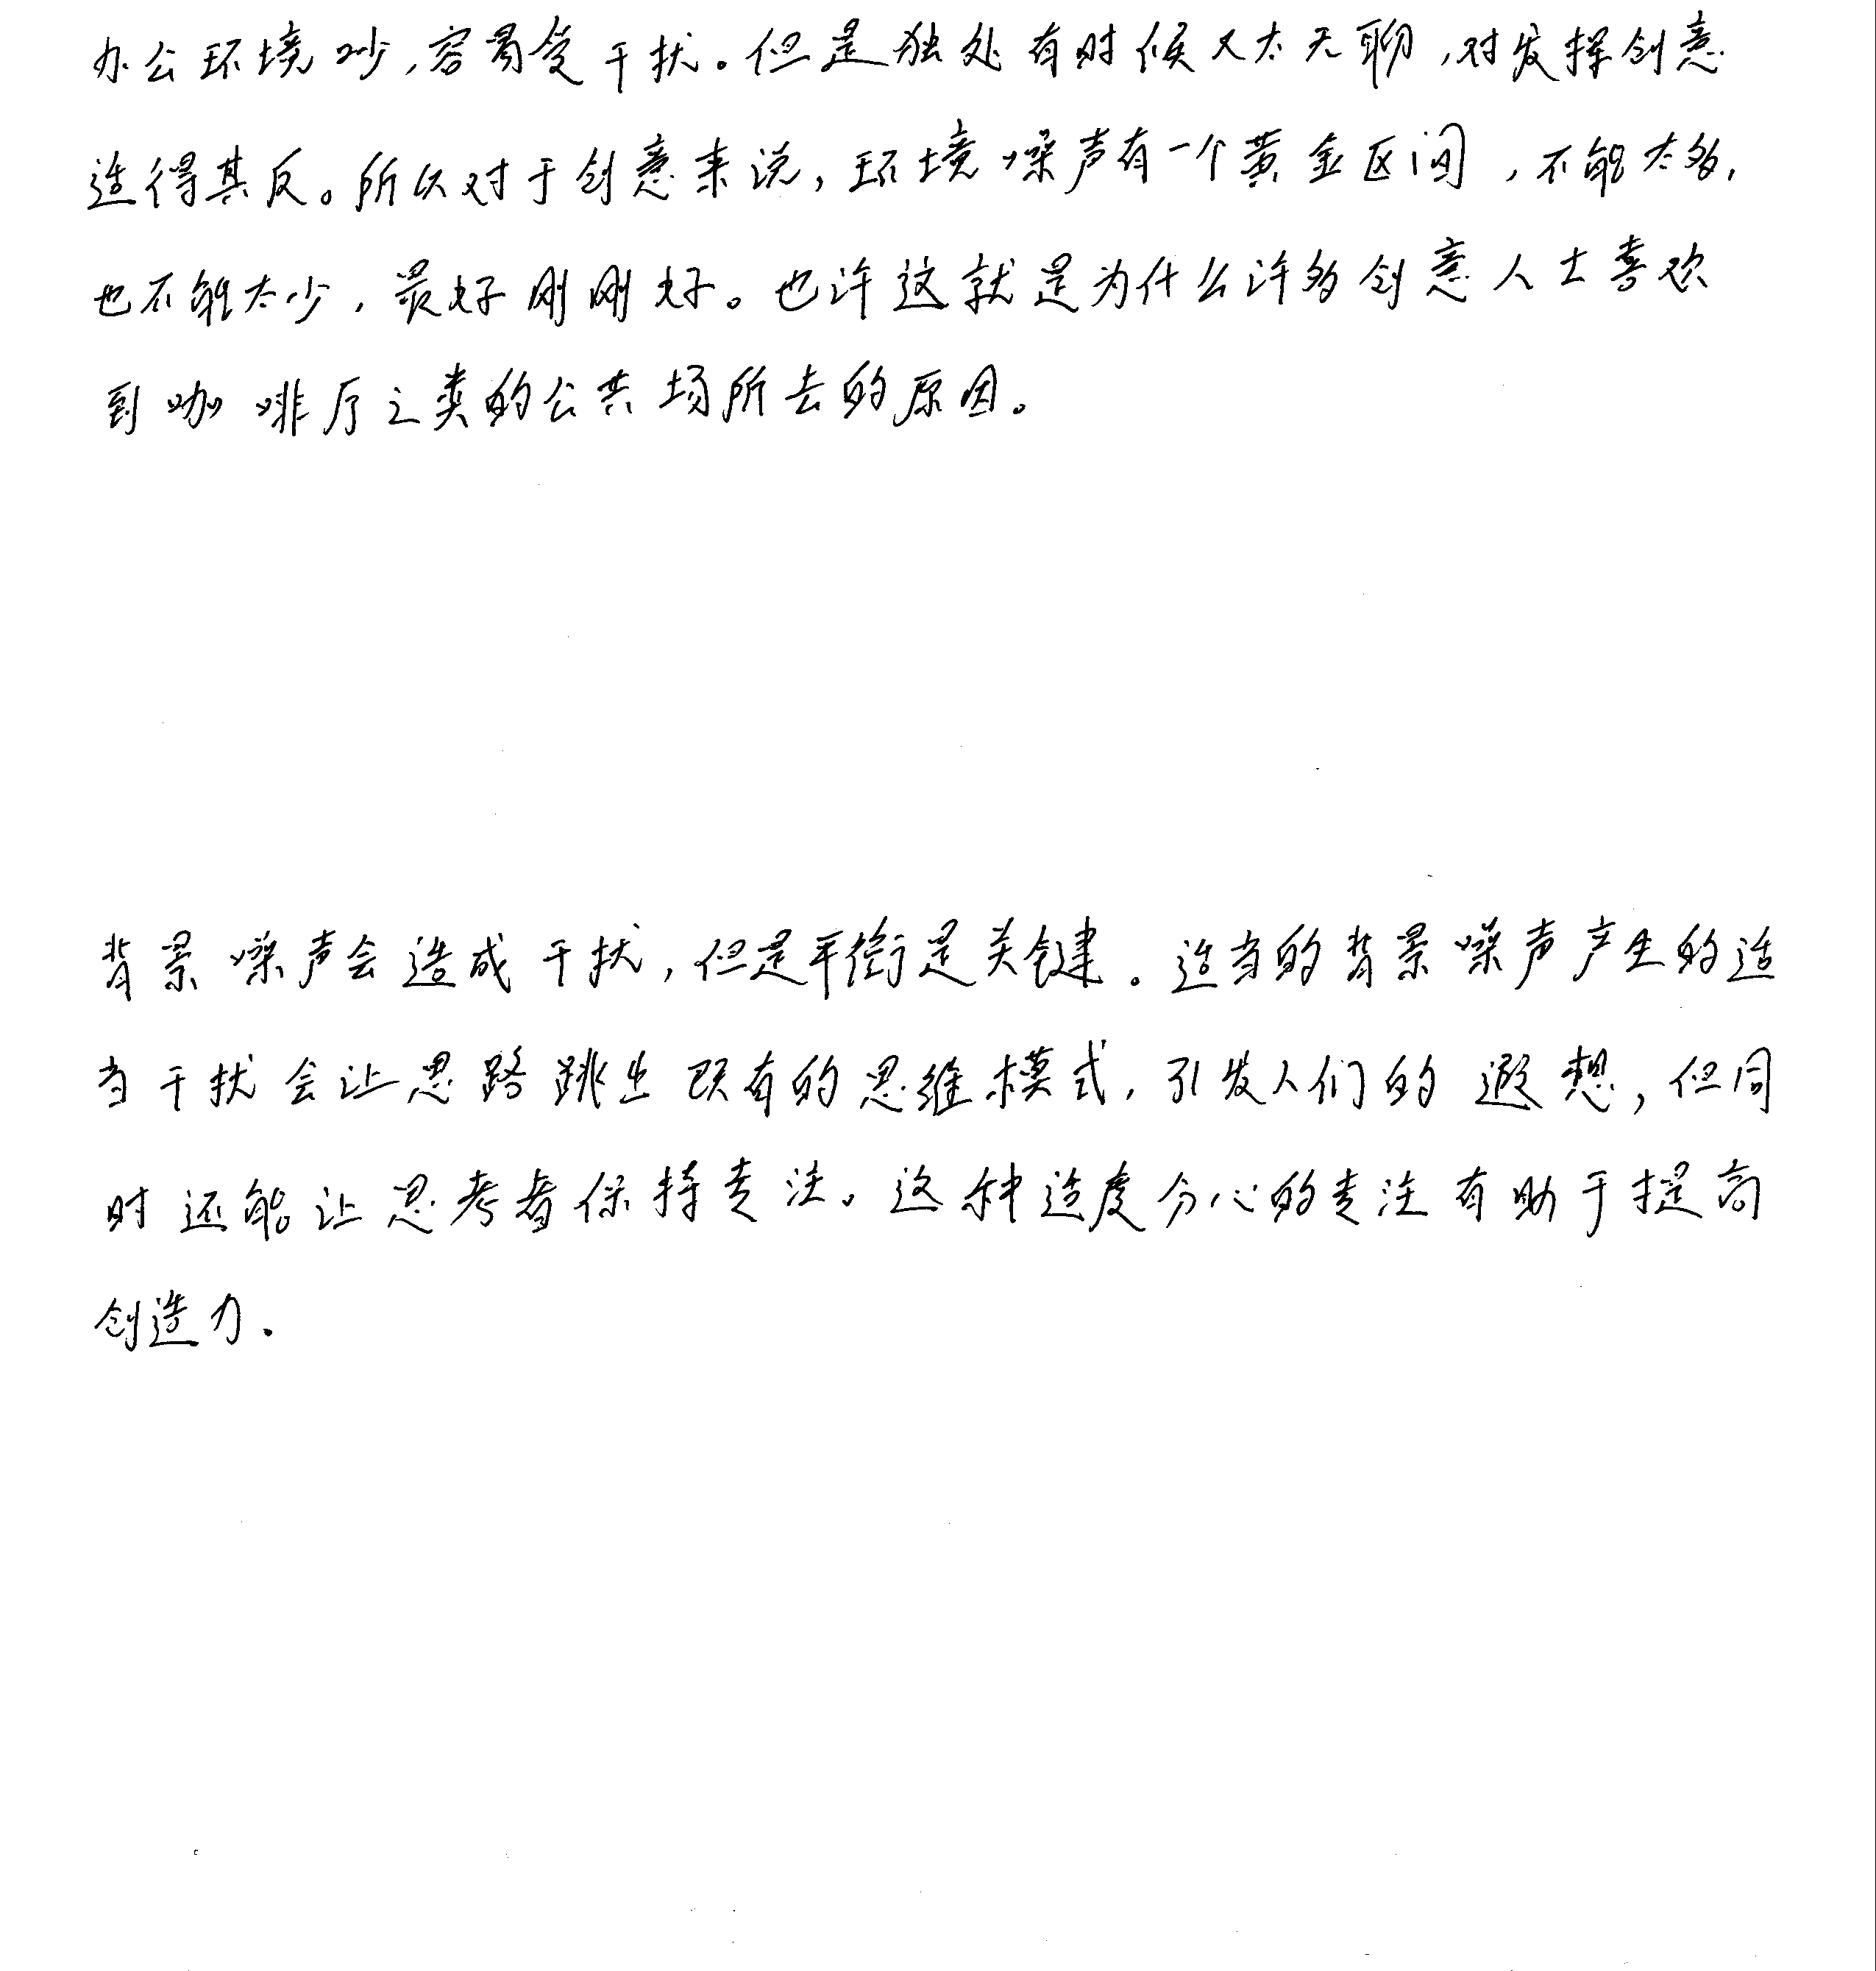 办公环境吵,容易受干扰。但是独处有时候又太无聊,对发挥创意
适得其反。所以对于创意来说,环境噪声有一个黄金区间,不能太多,
也不能太少,最好刚刚好。也许这就是为什么许多创意人士喜欢
到咖啡厅之类的公共场所去的原因。
背景噪声会造成干扰,但是平衡是关键。适当的背景噪声产生的适
当干扰会让思路跳出既有的思维模式,引发人们的遐想,但同
时还能让思考者保持专注。这种适度分心的专注有助于提高
创造力。